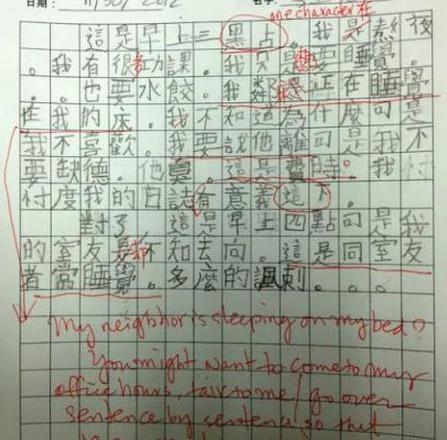 日期: 11/30/2012 名字:
one character 在
這是早上二黑占。我是熬夜
。我有很多功課。我只想要睡覺
。也要水餃。我鄰還正在睡覺
在我的床。我不知道為什麼可是
我不喜歡。我要說他離可是我不
要缺德。他真。這是費時。我忖
忖度我的日誌有意義這下。
對了這是早上四點可是我
的室友是不知去向。這是同室友
者常睡覺。多麼的諷刺。。。
My neighbor is sleeping on my bed?
You might want to come to my
office hours, talk to me/go over
sentence by sentence so that